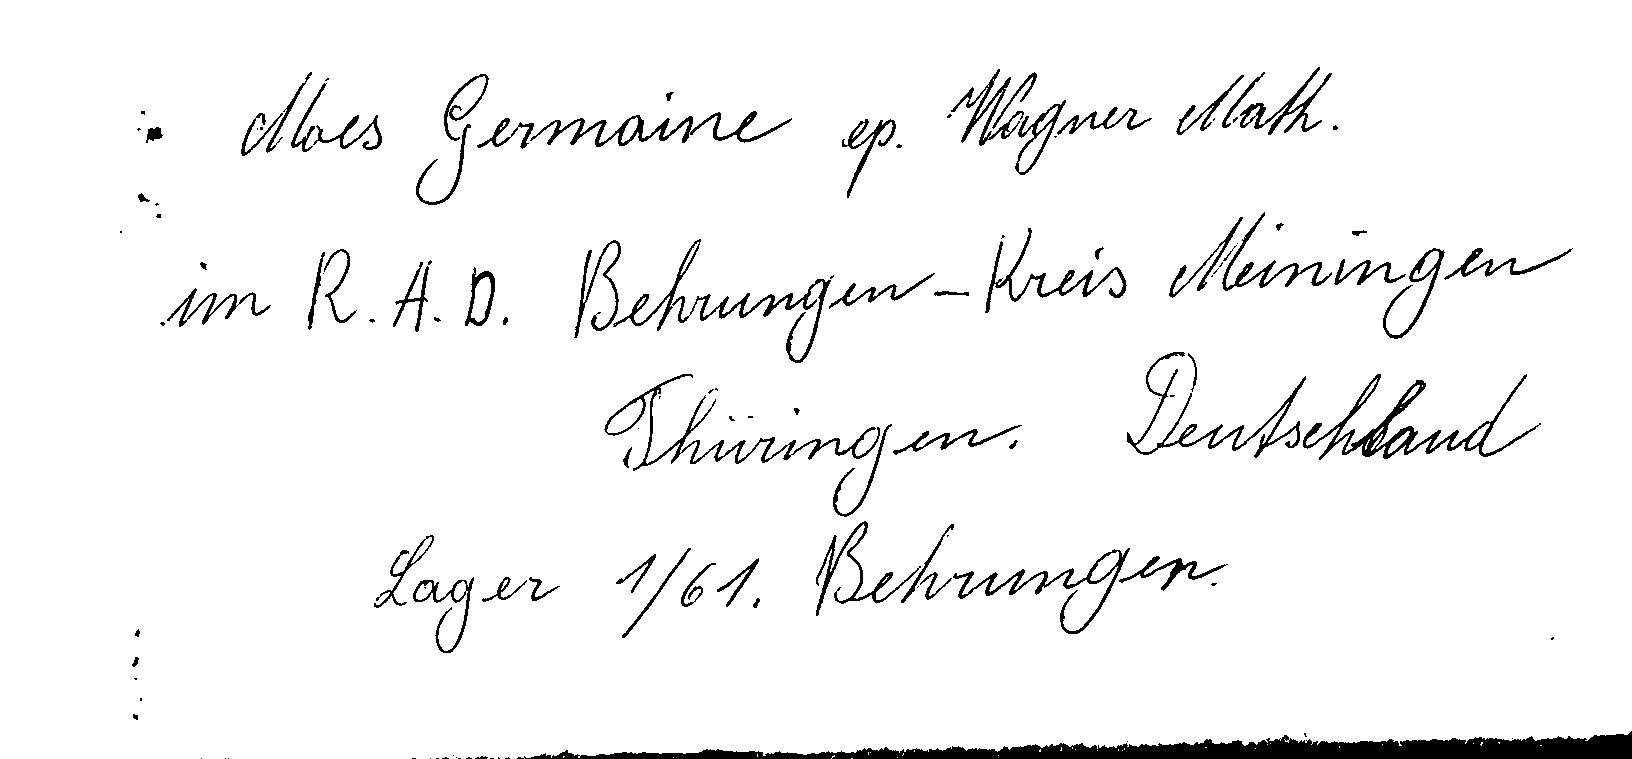 Moes Germaine ep. Wagner Math.
im R.A.D. Behrungen - Kreis Meiningen
Thüringen. Deutschland
Lager 1/61. Behrungen.